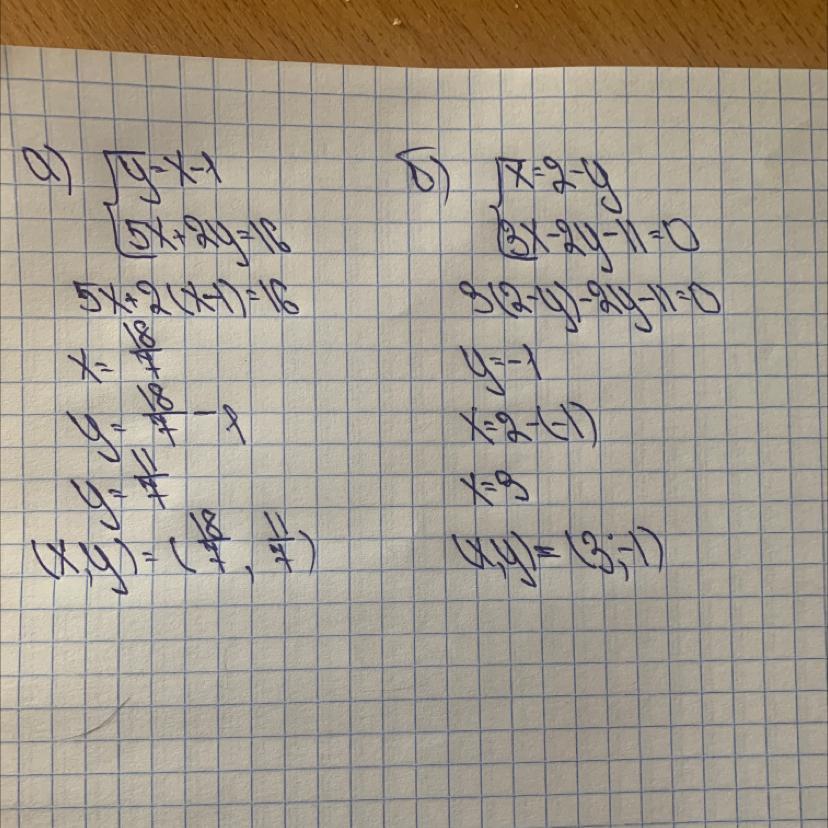 а) { y=x-1
{ 5x+2y=16
5x+2(x-1)=16
x= 18/7
y= 18/7 - 1
y= 11/7
(x,y)=(18/7, 11/7)
б) { x=2-y
{ 3x-2y-11=0
3(2-y)-2y-11=0
y=-1
x=2-(-1)
x=3
(x,y)=(3;-1)